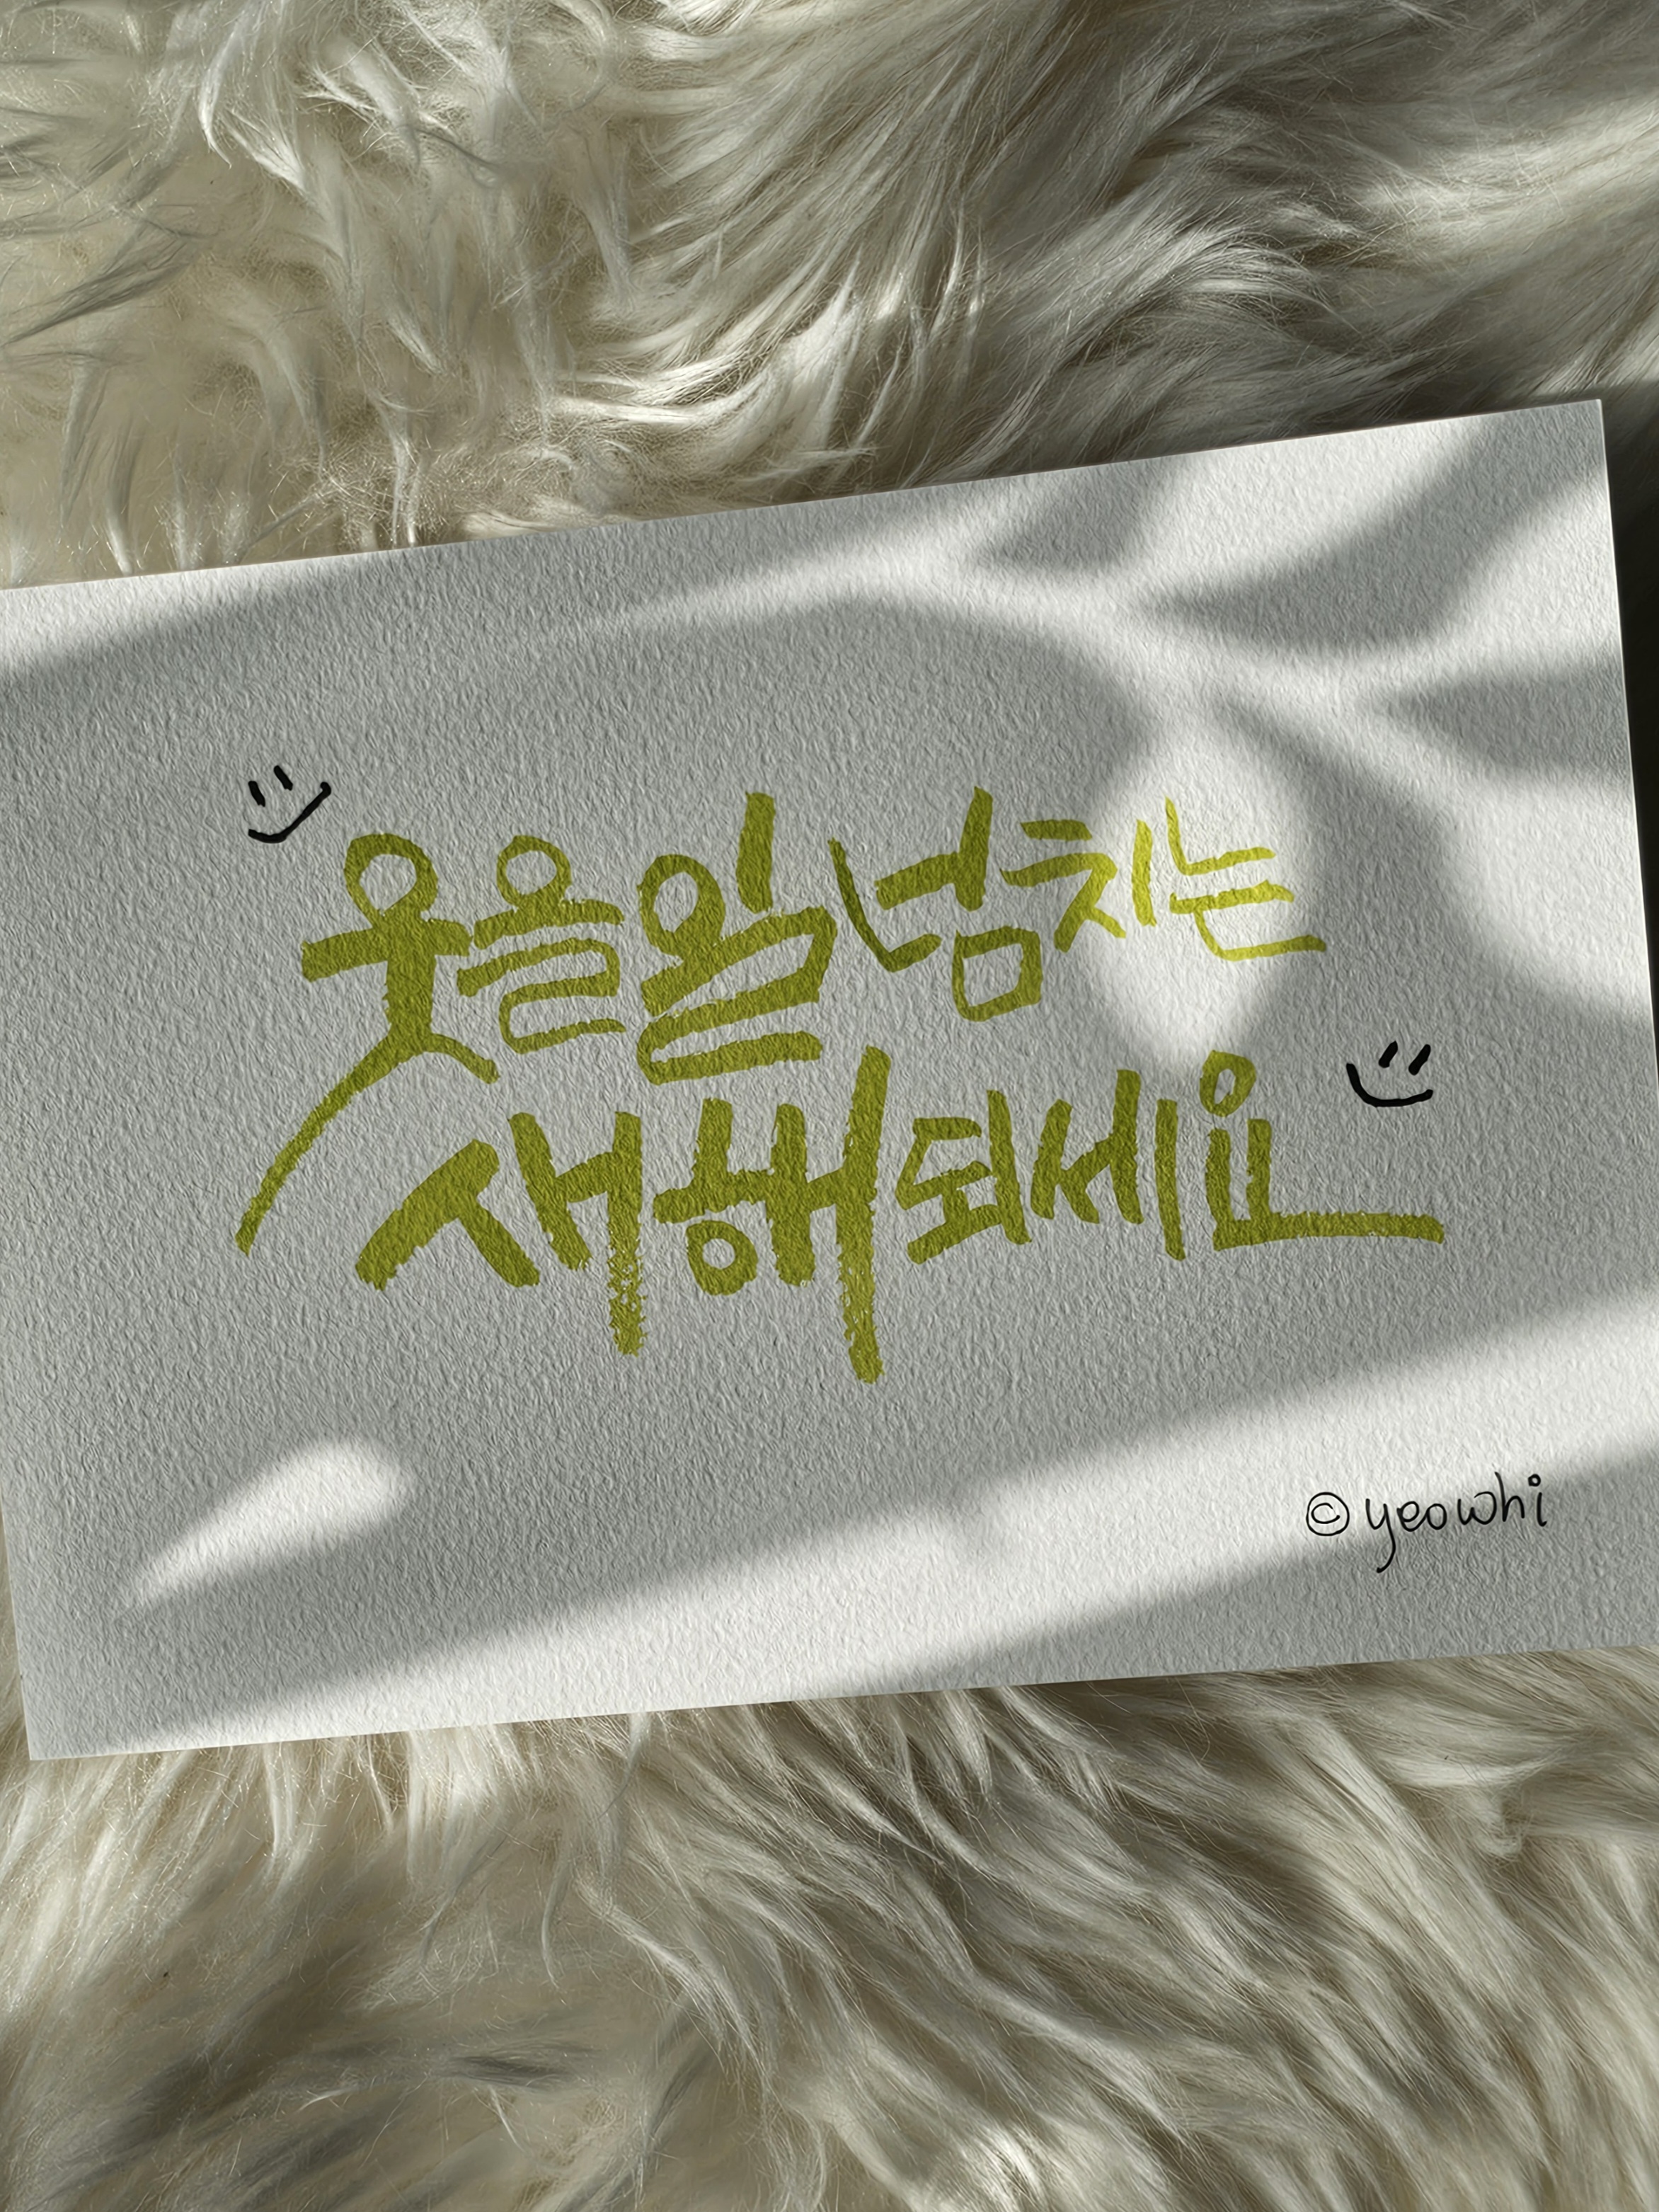 웃을일 넘치는
새해 되세요
© yeowhi